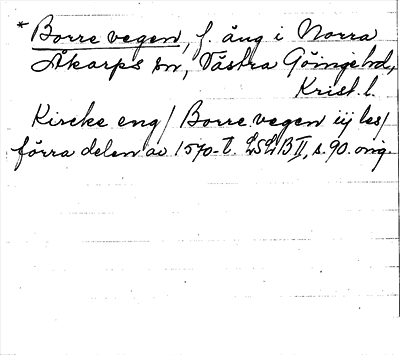 * Borre vegen, f. äng i Norra
Åkarps sn, Västra Göingehd,
Krist. l.
Kircke eng / Borre vegen iij les /
förra delen av 1570-t. LSLB II, s. 90. orig.